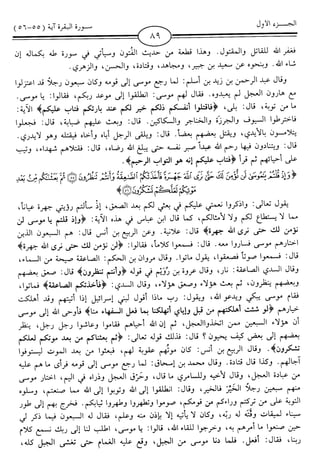 الجـــزء الأول
٨٩
سـورة البقرة آية (٥٥-٥٦)
فغفر الله للقاتل والمقتول. وهذا قطعة من حديث الفُتون وسيأتي في سورة طه بكماله إن
شاء الله. وبنحوه عن سعيد بن جبير، ومجاهد، وقتادة، والحسن، والزهري.
وقال عبد الرحمن بن زيد بن أسلم: لما رجع موسى إلى قومه وكان سبعون رجلاً قد اعتزلوا
مع هارون العجل لم يعبدوه. فقال لهم موسى: انطلقوا إلى موعد ربكم، فقالوا: يا موسى.
ما من توبة، قال: بلى، ﴿فاقتلوا أنفسكم ذلكم خير لكم عند بارئكم فتاب عليكم﴾ الآية:
فاخترطوا السيوف والجرزَة والخناجر والسكاكين. قال: وبعث عليهم ضبابة، قال: فجعلوا
يتلامسون بالأيدي، ويقتل بعضهم بعضاً. قال: ويلقى الرجل أباه وأخاه فيقتله وهو لايدري.
قال: ويتنادون فيها رحم الله عبداً صبر نفسه حتى يبلغ الله رضاه، قال: فقتلاهم شهداء، وتيب
على أحيائهم ثم قرأ ﴿فتاب عليكم إنه هو التواب الرحيم﴾.
﴿وَإِذْ قُلْتُمْ يَا مُوسَى لَن نُّؤْمِنَ لَكَ حَتَّى نَرَى اللَّهَ جَهْرَةً فَأَخَذَتْكُمُ الصَّاعِقَةُ وَأَنتُمْ تَنظُرُونَ (٥٥) ثُمَّ بَعَثْنَاكُم مِّن بَعْدِ
مَوْتِكُمْ لَعَلَّكُمْ تَشْكُرُونَ (٥٦)﴾
يقول تعالى: واذكروا نعمتي عليكم في بعثي لكم بعد الصعق، إذ سألتم رؤيتي جهرة عياناً،
مما لا يستطاع لكم ولا لأمثالكم، كما قال ابن عباس في هذه الآية: ﴿وإذ قلتم يا موسى لن
نؤمن لك حتى نرى الله جهرة﴾ قال: علانية. وعن الربيع بن أنس قال: هم السبعون الذين
اختارهم موسى فساروا معه. قال: فسمعوا كلاماً، فقالوا: ﴿لن نؤمن لك حتى نرى الله جهرة﴾
قال: فسمعوا صوتاً فصعقوا، يقول ماتوا. وقال مروان بن الحكم: الصاعقة صيحة من السماء،
وقال السدي الصاعقة: نار، وقال عروة بن رُوَيْم في قوله ﴿وأنتم تنظرون﴾ قال: صعق بعضهم
وبعضهم ينظرون، ثم بعث هؤلاء وصعق هؤلاء. وقال السدي: ﴿فأخذتكم الصاعقة﴾ فماتوا،
فقام موسى يبكي ويدعو الله، ويقول: رب ماذا أقول لبني إسرائيل إذا أتيتهم وقد أهلكت
خيارهم ﴿لو شئت أهلكتهم من قبل وإياي أتهلكنا بما فعل السفهاء منا﴾ فأوحى الله إلى موسى
أن هؤلاء السبعين ممن اتخذوالعجل، ثم إن الله أحياهم فقاموا وعاشوا رجل رجل، ينظر
بعضهم إلى بعض كيف يحيون؟ قال: فذلك قوله تعالى: ﴿ثم بعثناكم من بعد موتكم لعلكم
تشكرون﴾. وقال الربيع بن أنس: كان موتُهم عقوبة لهم، فبعثوا من بعد الموت ليستوفوا
آجالهم. وكذا قال قتادة. وقال محمد بن إسحاق: لما رجع موسى إلى قومه فرأى ما هم عليه
من عبادة العجل، وقال لأخيه وللسامري ما قال، وحَرّق العجل وذراه في اليم، اختار موسى
منهم سبعين رجلاً الخيِّر فالخير، وقال: انطلقوا إلى الله وتوبوا إلى الله مما صنعتم، وسلوه
التوبة على من تركتم وراءكم من قومكم، صوموا وتطهروا وطهروا ثيابكم. فخرج بهم إلى طور
سيناء لميقات وقّته له ربّه، وكان لا يأتيه إلا بإذن منه وعلم، فقال له السبعون فيما ذكر لي
حين صنعوا ما أمرهم به، وخرجوا للقاء الله، قالوا: يا موسى، اطلب لنا إلى ربك نسمع كلام
ربنا، فقال: أفعل. فلما دنا موسى من الجبل، وقع عليه الغمام حتى تغشى الجبل كله،